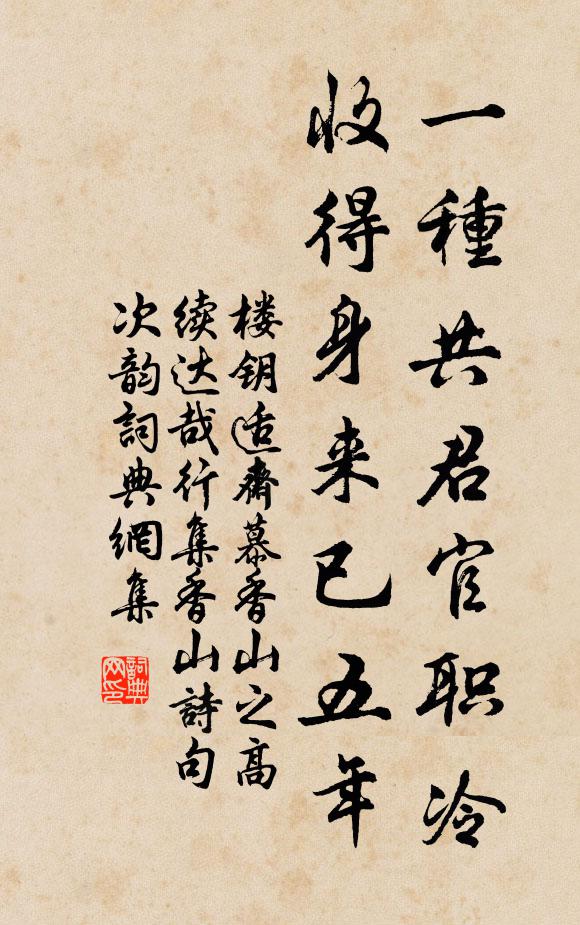 一種共君官职冷
收得身来已五年
楼钥适齋慕香山之高
续达哉行集香山詩句
次韵詞典網集
詞典网印